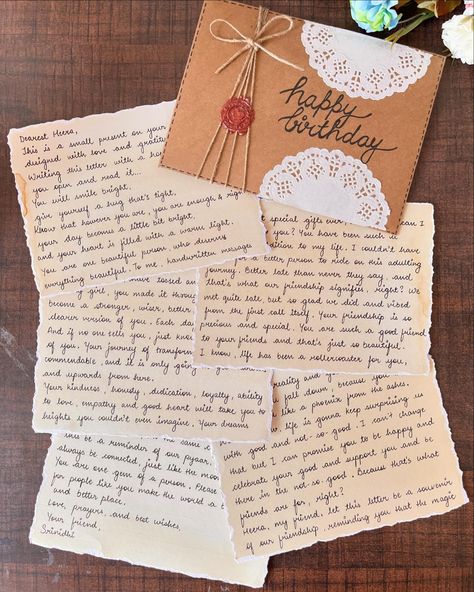 happy
birthday
Dearest Heera,
This is a small present on your
designed with love and gratitu
Writing this letter with a hu
you open and read it...
You will smile bright,
give yourself a hug that's tight.
Know that however you are, you are enough & righ
your day become a little bit bright,
and your heart is filled with a warm light.
You are one beautiful person, who deserves
everything beautiful. To me, handwritten messages
special gifts ever. can I
you? You have been such a
ition to my life. I couldn't have
for a better person to ride on this adulting
journey. Better late than never they say, and
that's what our friendship signifies, right? We
met quite late, but so glad we did and vibed
from the first call itself. Your friendship is so
precious and special. You are such a good friend
to your friends and that's just so beautiful.
I know, life has been a rollercoaster for you,
my girl, you made it throu
become a stronger, wiser, better
clearer version of you. Each da
And if no one tells you, just kn
of you. Your journey of transform
commendable, and it is only going
and upwards from here.
Your kindness, honesty, dedication, loyalty, ability
to love, empathy and good heart will take you to
heights you couldn't even imagine. Your dreams
reality and
fall down, because you
like a phoenix from the ashes.
life is gonna keep surprising
with good and not-so-good. I can't change
that but I can promise you to be happy and
celebrate your good and support you and be
there in the not-so-good. Because that's what
friends are for, right?
Heera, my friend, let this letter be a souvenir
of our friendship, reminding you that the magic
be a reminder of our pyaar,
always be connected, just like the moon
You are one gem of a person. Please
for people like you make the world a b
and better place.
Love, prayers, and best wishes,
Your friend,
Srinidhi